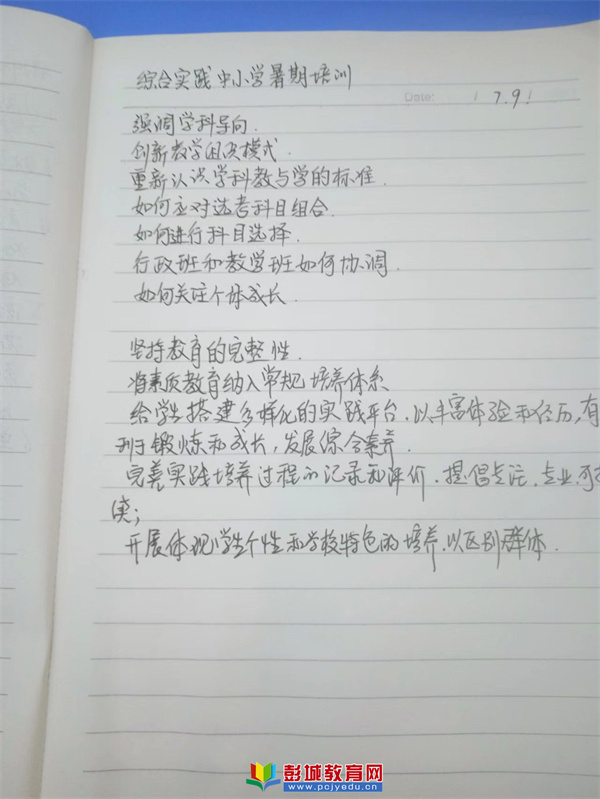 综合实践中小学暑期培训
Date: 7.9!
强调学科导向.
创新教学固决模式.
重新认识学科教与学的标准.
如何应对选考科目组合.
如何进行科目选择.
行政班和教学班如何协调.
如何关注个体成长.
坚持教育的完整性.
将素质教育纳入常规培养体系
给学生搭建多样化的实践平台.以丰富体验和经历,有
利于锻炼和成长,发展综合素养.
完善实践培养过程的记录和评价.提倡专注.专业.
实;
开展体现学生个性和学校特色的培养.以区别群体.
彭城教育网
www.pcjyedu.cn